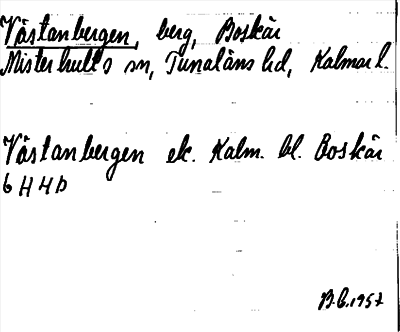 Västanbergen, berg, Boskär
Misterhults sn, Tunaläns hd, Kalmar l.
Västanbergen ek. Kalm. bl. Boskär
6 H H b
B.C. 1957